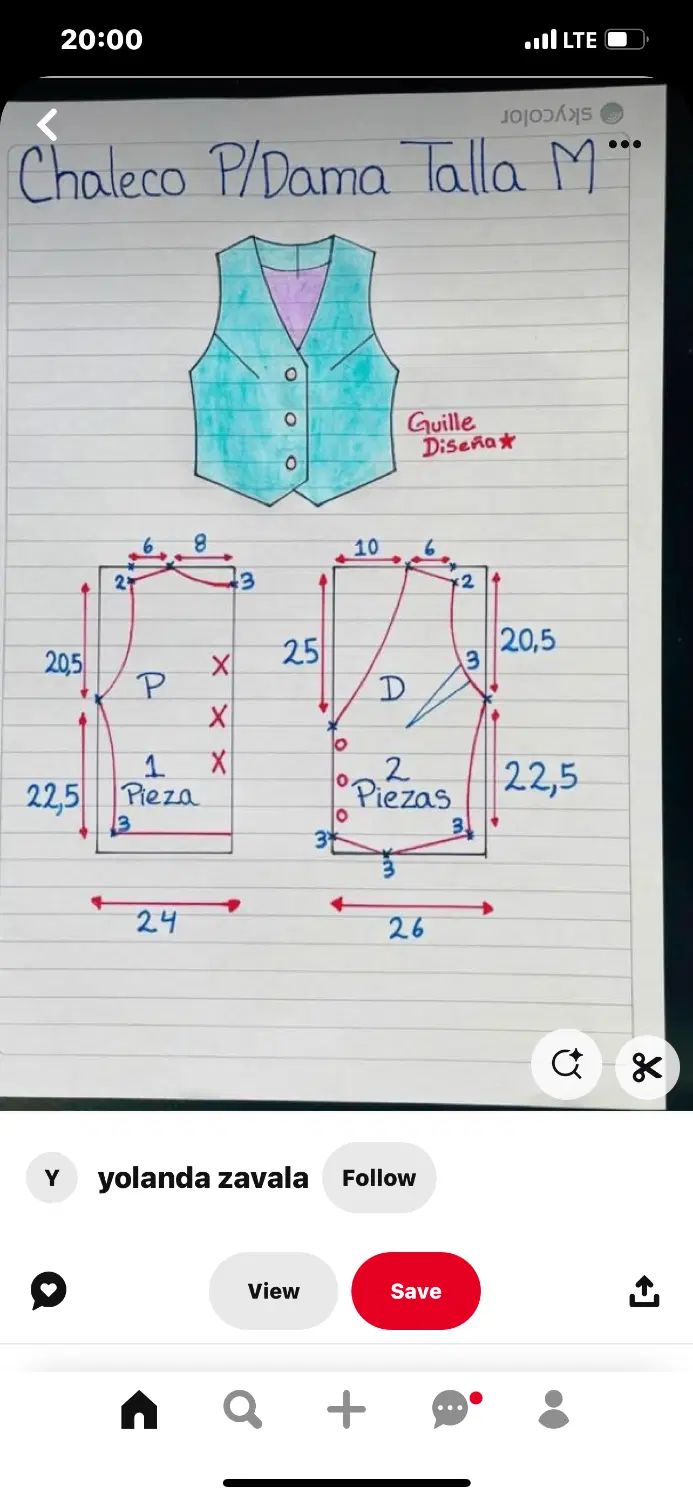 20:00 LTE
skycolor
Chaleco P/Dama Talla M
Guille
Diseña
6 8
2 3
20,5
P
X
X
X
1
Pieza
22,5
3
24
10 6
2
25
20,5
3
D
2
Piezas
22,5
3
3
3
26
Y yolanda zavala Follow
View Save